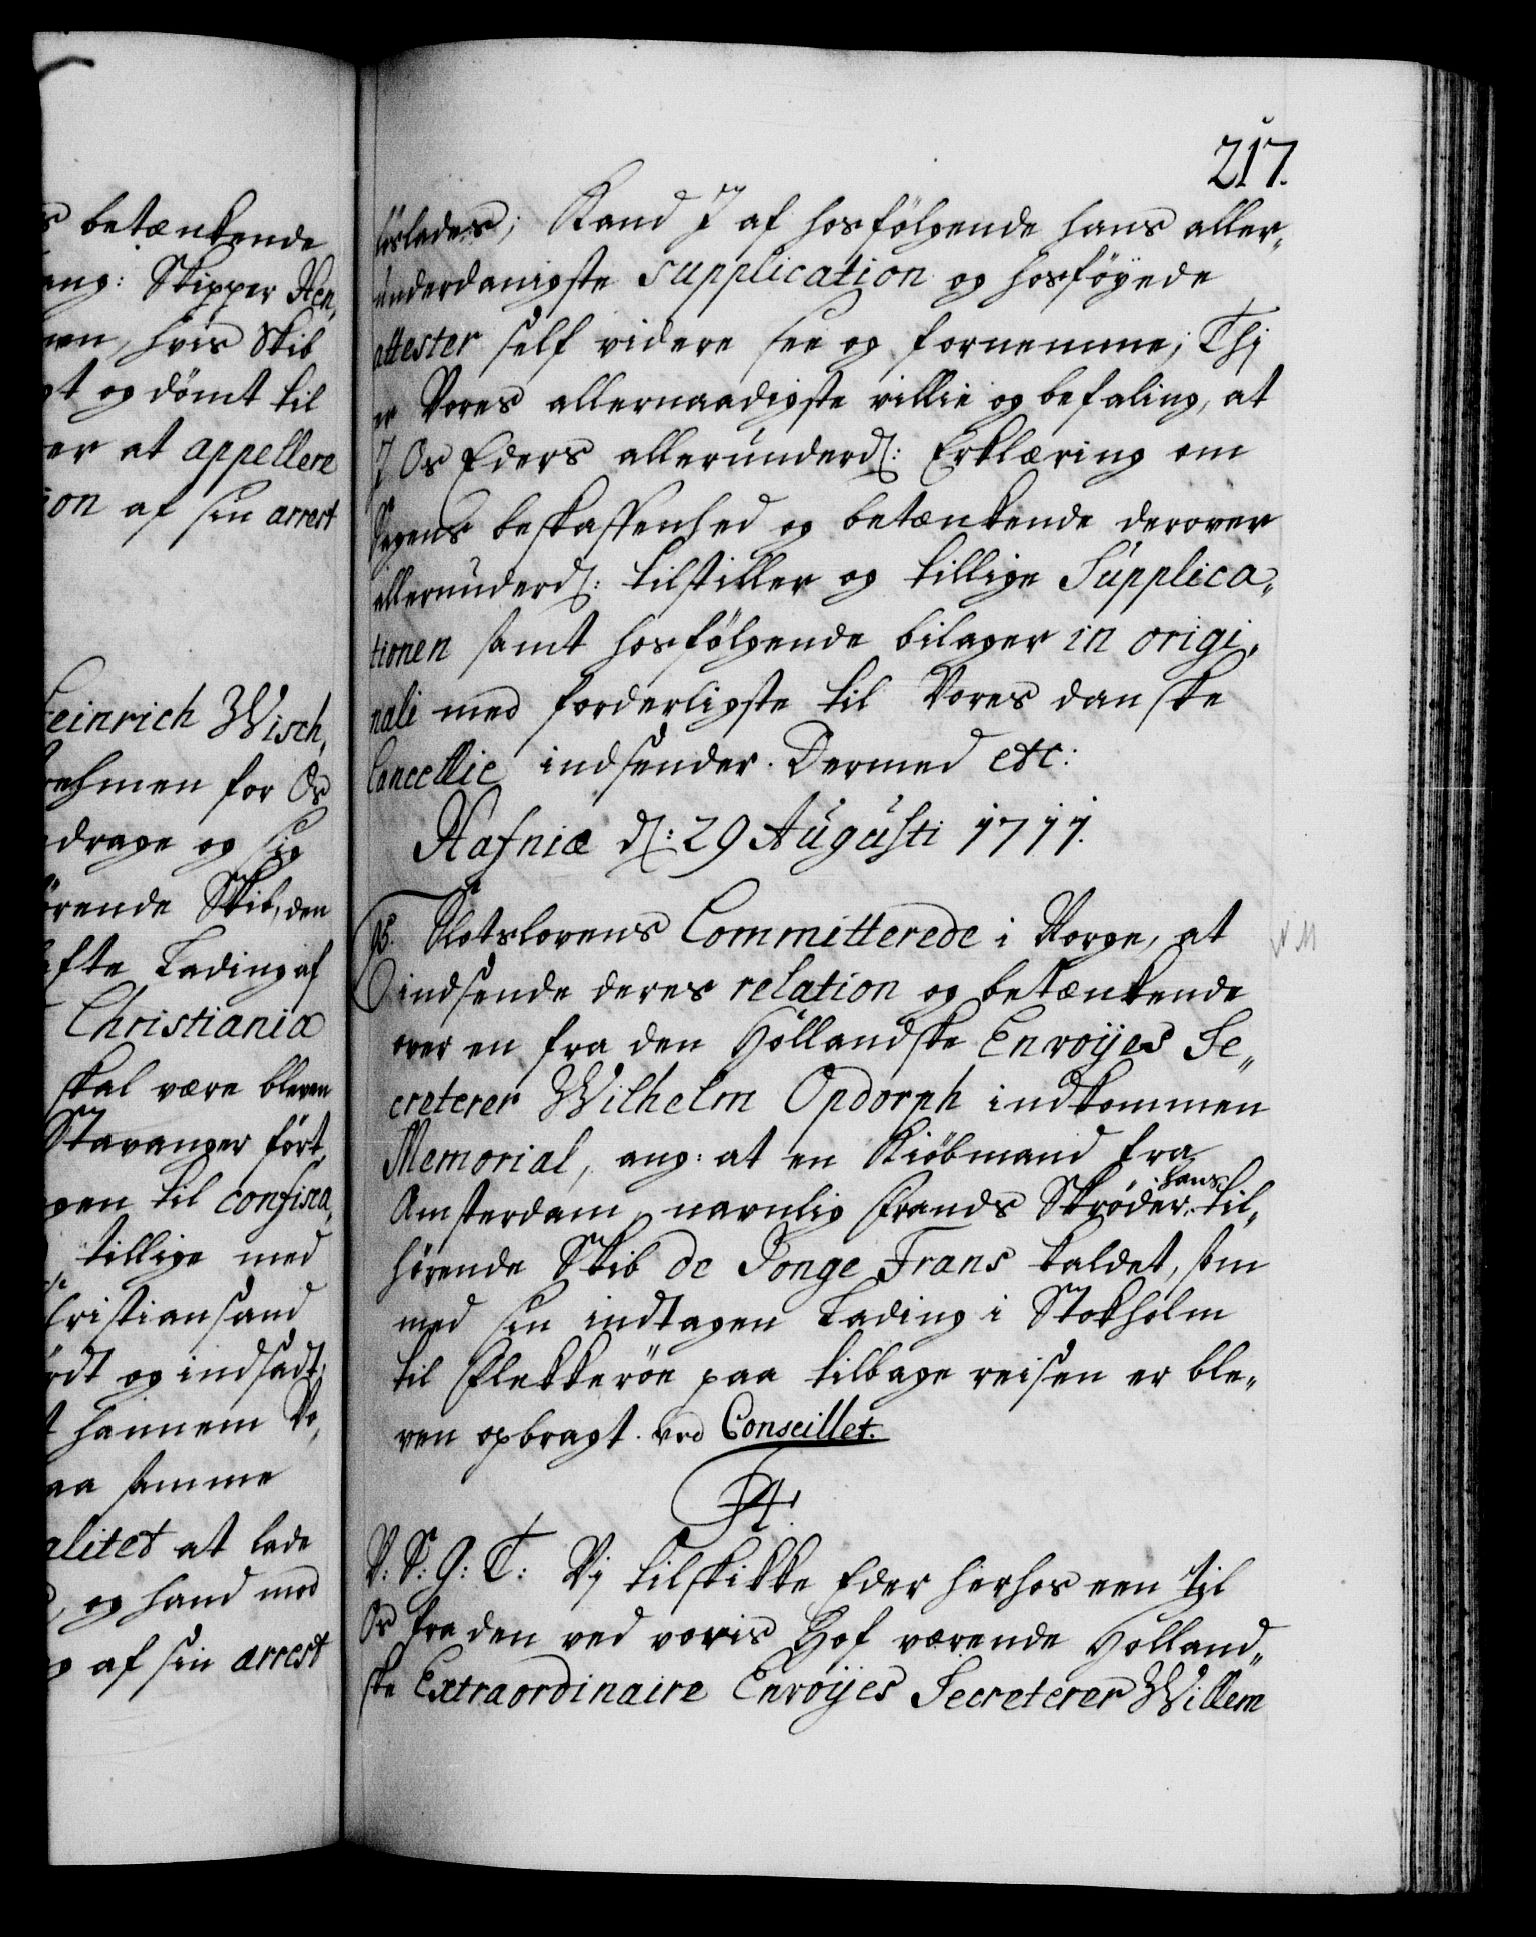 217.
s betænkende
ang: Skipper Hen,
men, hvis Skib
gt og dömt til
er at appellere
ion af sin arrest
Heinrich Wisch,
Brehmen for Os
drage og sig
örende Skib, den
afte Lading af
Christiania
skal være bleven
Stavanger fört,
gen til confisca,
tillige med
Christiansand
ördt og indsadt,
t hannem Vo,
aa samme
alitet at lade
, og hand mod
g af sin arrest
löslades; Kand I af hosfölgende hans aller,,
underdanigste supplication og hosföyede
attester self videre see og fornemme; Thj
er Vores allernaadigste villie og befaling, at
I Os Eders allerunderd: Erklæring om
Sagens beskaffenhed og betænkende derover
allerunderd: tilstiller og tillige Supplica,,
tionen samt hosfölgende bilager in origi,
nali med forderligste til Vores danske
Cancellie indsender. Dermed etc:
Hafniæ d: 29 Augusti 1711.
95. Slotslovens Committerede i Norge, at
indsende deres relation og betænkende
over en fra den Hollandske Envoÿes Se,,
creterer Wilhelm Opdorph indkommen
Memorial, ang: at en Kiöbmand fra
Amsterdam, navnlig Frands Skröder, hans til,,
hörende Skib de Jonge Frans kaldet, som
med sin indtagen Lading i Stokholm
til Flekkeröe paa tilbage reisen er ble,,
ven opbragt. ved Conseillet.
F4.
V: S: G: T: Vj tilskikke Eder herhos een til
Os fra den ved voris Hof værende Holland,,
ske Extraordinaire Envoÿes Secreterer Willem